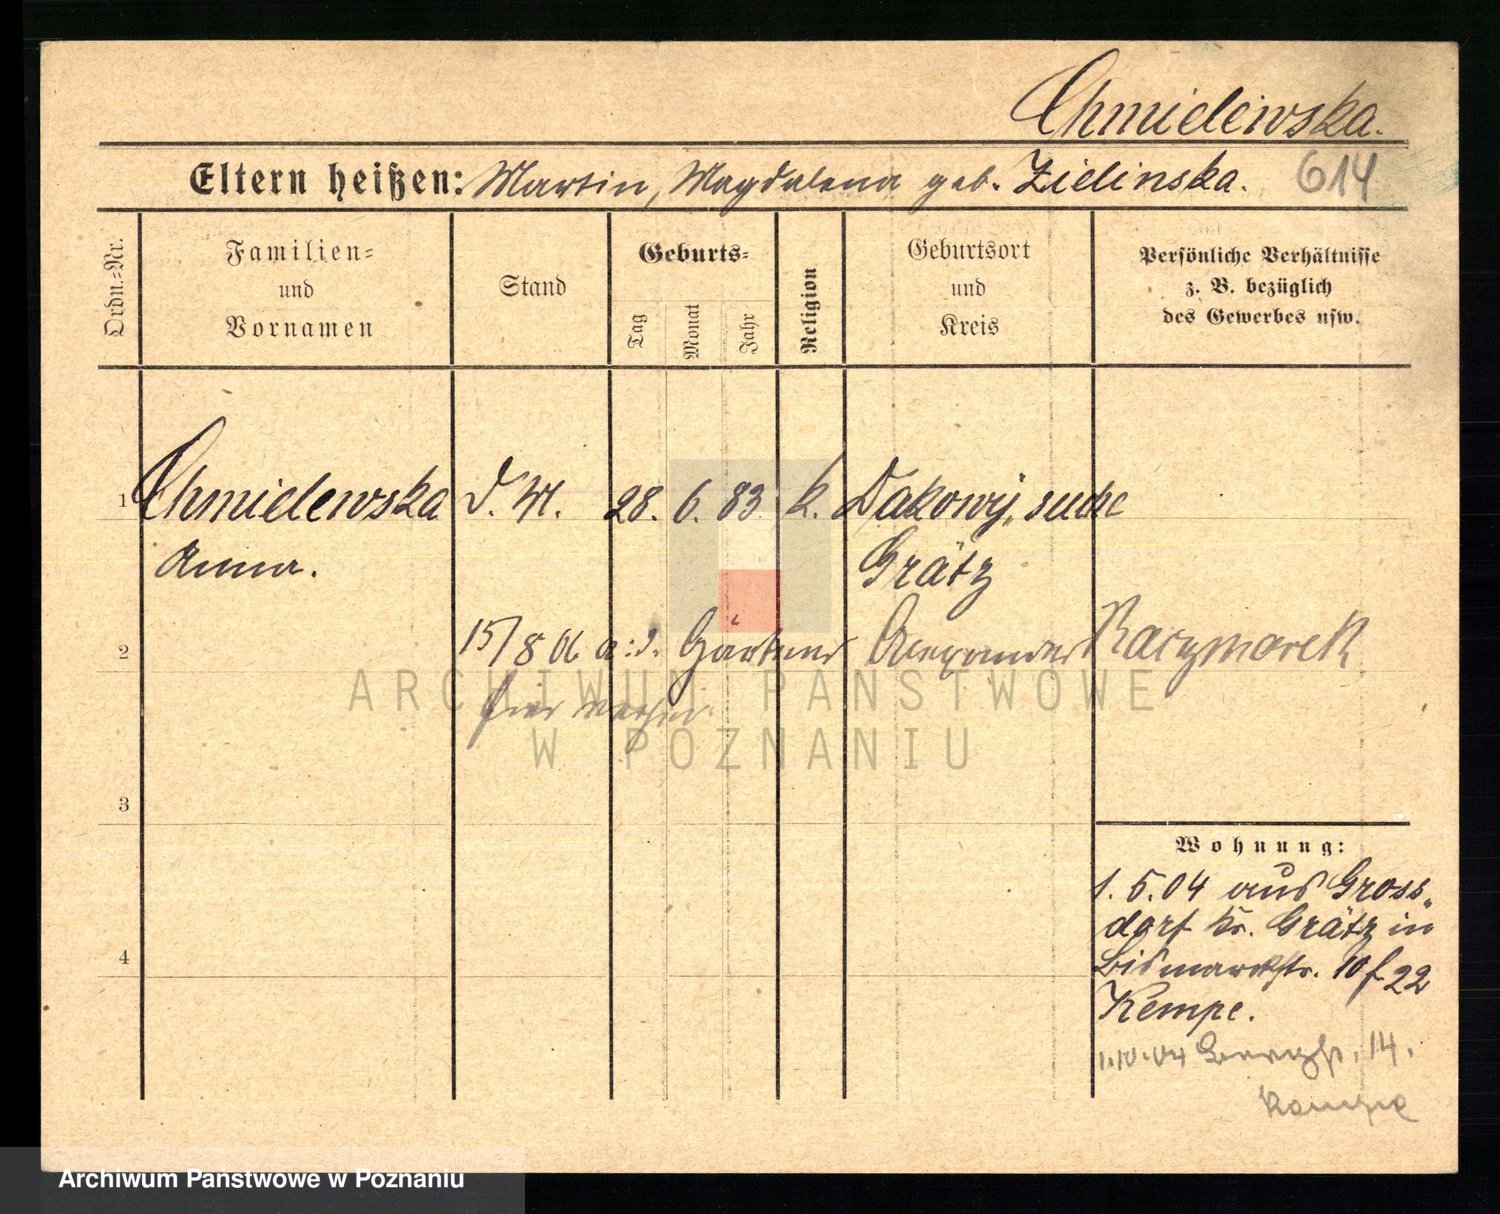 Chmielewska.
Eltern heißen: Martin, Magdalena geb. Zielinska. 614
Ordn.-Nr.
Familien-
und
Vornamen
Stand
Geburts-
Tag
Monat
Jahr
Religion
Geburtsort
und
Kreis
Persönliche Verhältnisse
z. B. bezüglich
des Gewerbes usw.
1 Chmielewska D. M. 28. 6. 83 k. Dakowy, suche
Anna. Grätz
2 15/8 06 a. d. Gärtner Alexander Kaczmarek
hier
ARCHIWUM PAŃSTWOWE
W POZNANIU
3
Wohnung:
1. 5. 04 aus Gross-
dorf Kr. Grätz in
4 Bismarckstr. 10 f 22
Kempe.
1.10.04 14.
Kempe
Archiwum Państwowe w Poznaniu